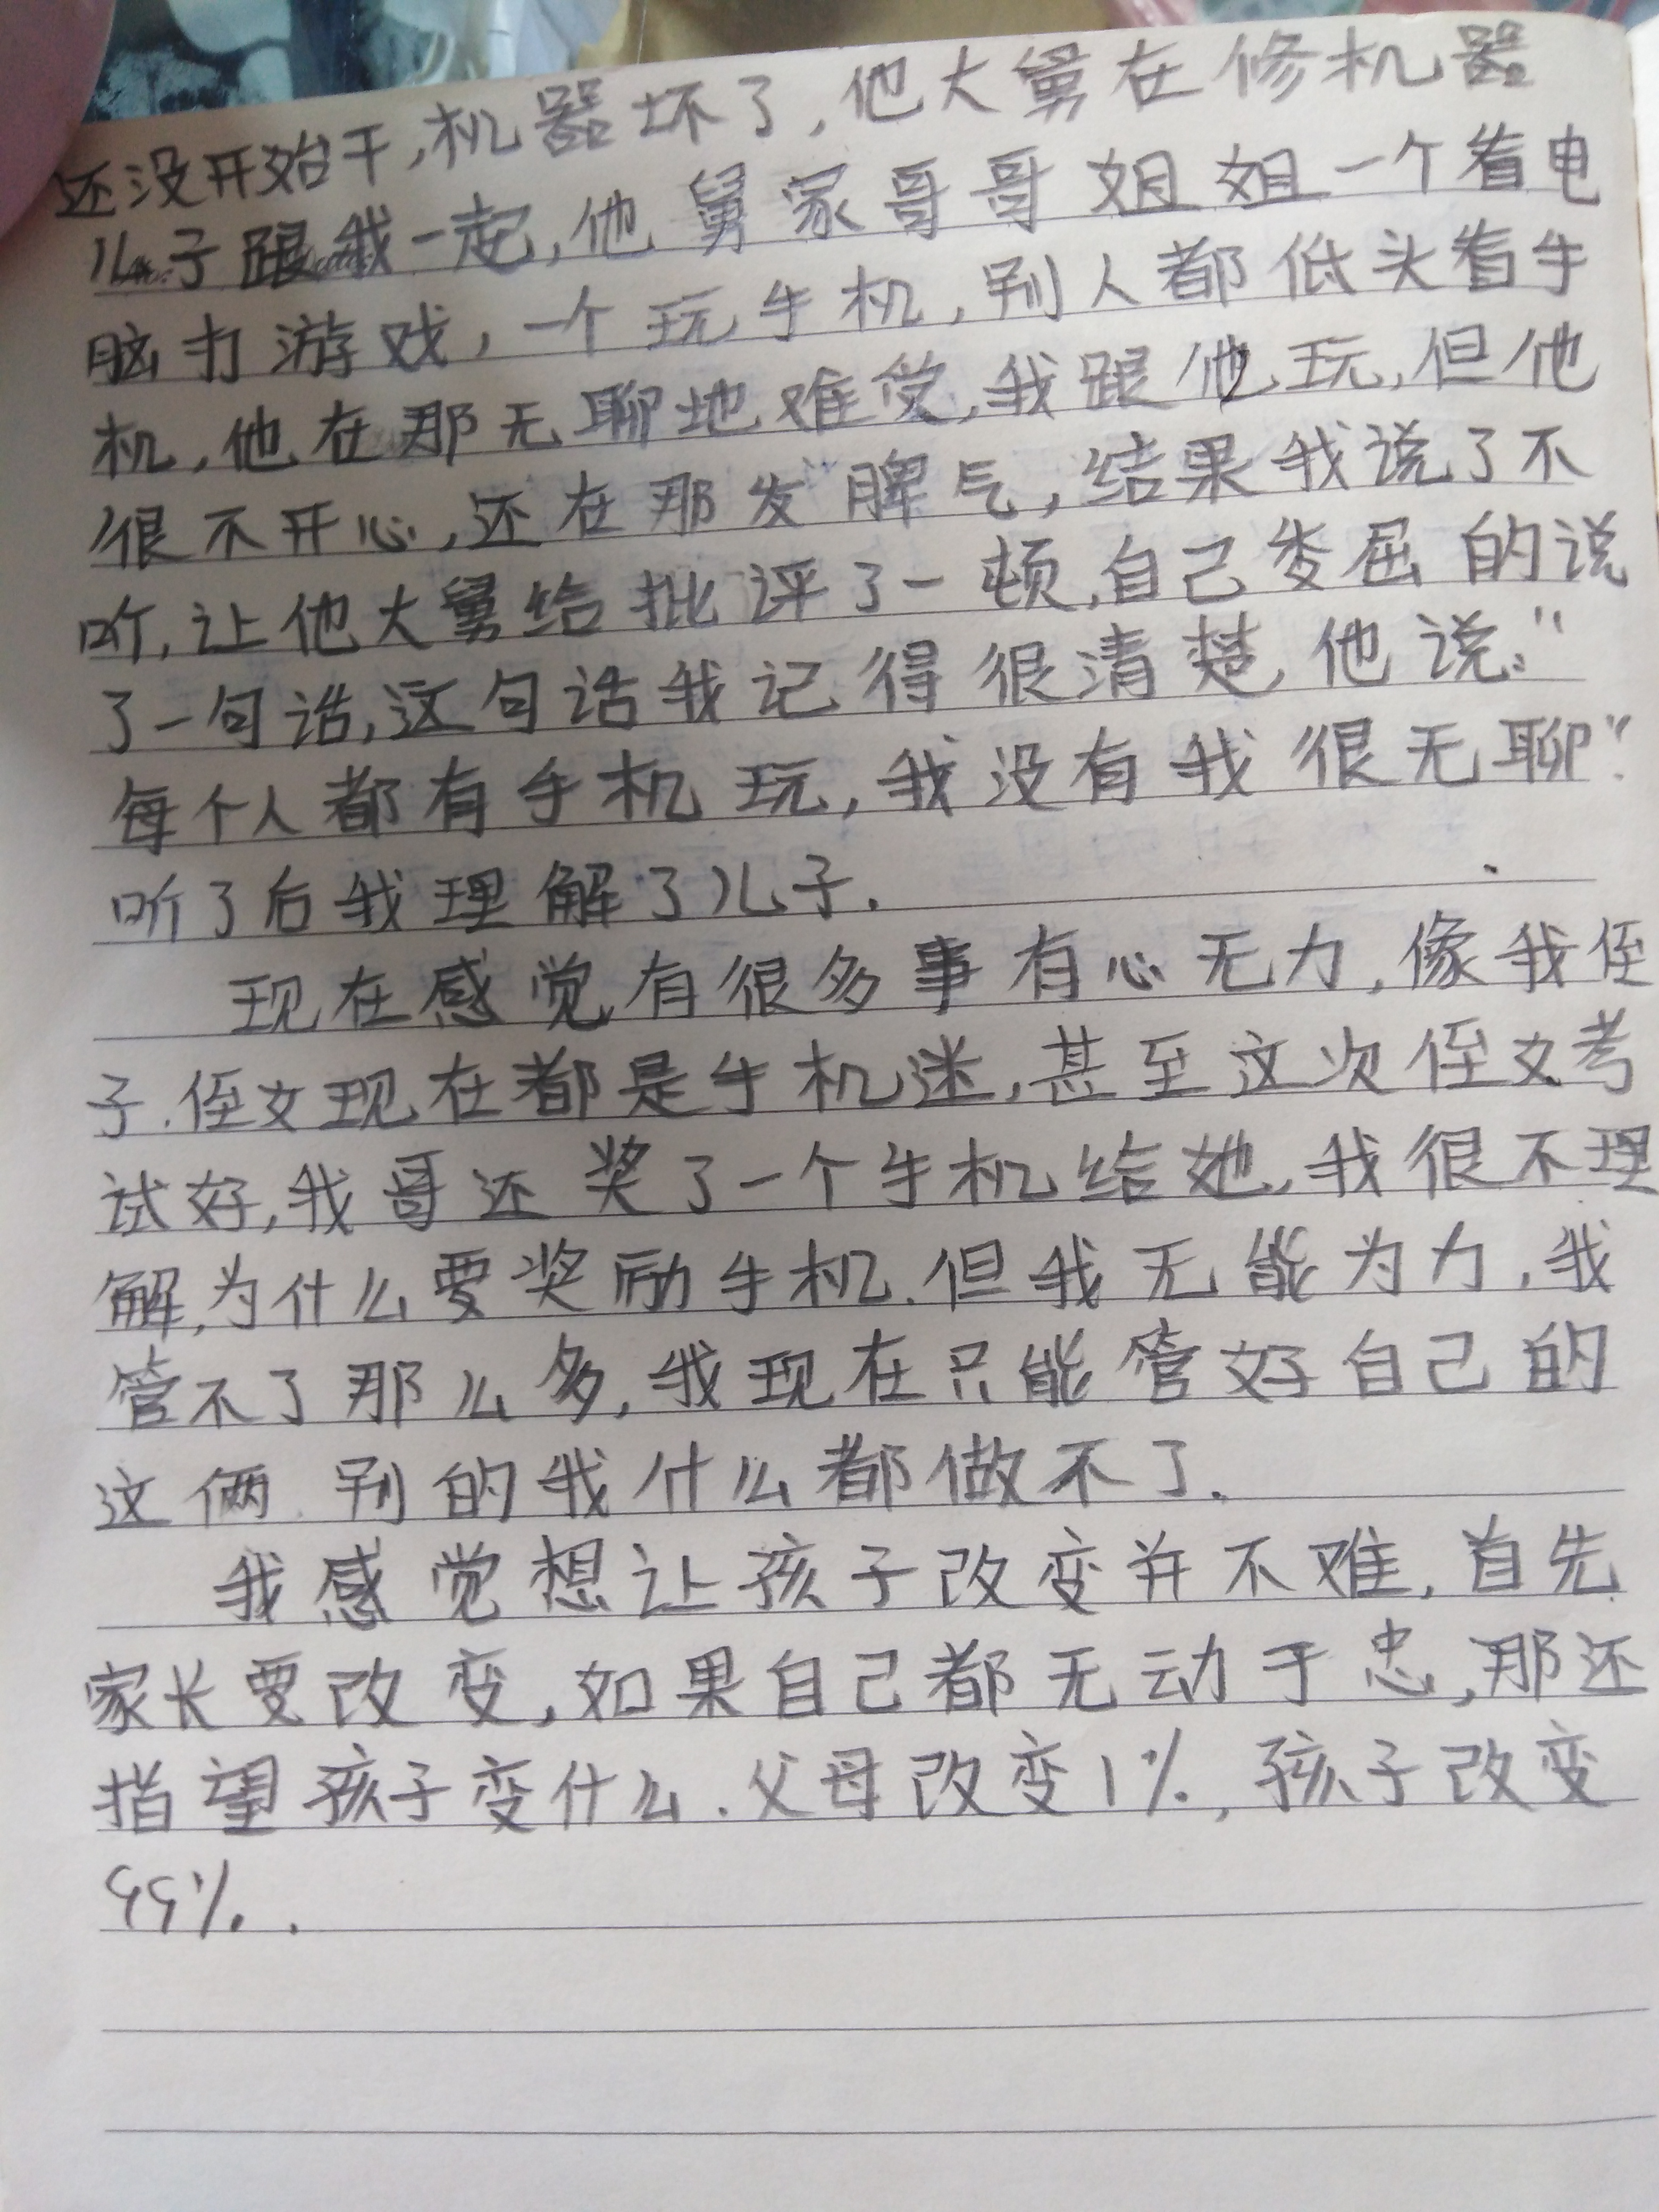 还没开始干,机器坏了,他大舅在修机器
儿子跟我一起,他舅家哥哥姐姐一个看电
脑打游戏,一个玩手机,别人都低头看手
机,他在那无聊地难受,我跟他玩,但他
很不开心,还在那发脾气,结果我说了不
听,让他大舅给批评了一顿,自己委屈的说
了一句话,这句话我记得很清楚,他说:"
每个人都有手机玩,我没有我很无聊".
听了后我理解了儿子.
现在感觉有很多事有心无力,像我侄
子.侄女现在都是手机迷,甚至这次侄女考
试好,我哥还奖了一个手机给她,我很不理
解,为什么要奖励手机.但我无能为力,我
管不了那么多,我现在只能管好自己的
这俩.别的我什么都做不了.
我感觉想让孩子改变并不难,首先
家长要改变,如果自己都无动于忠,那还
指望孩子变什么.父母改变1%,孩子改变
99%.